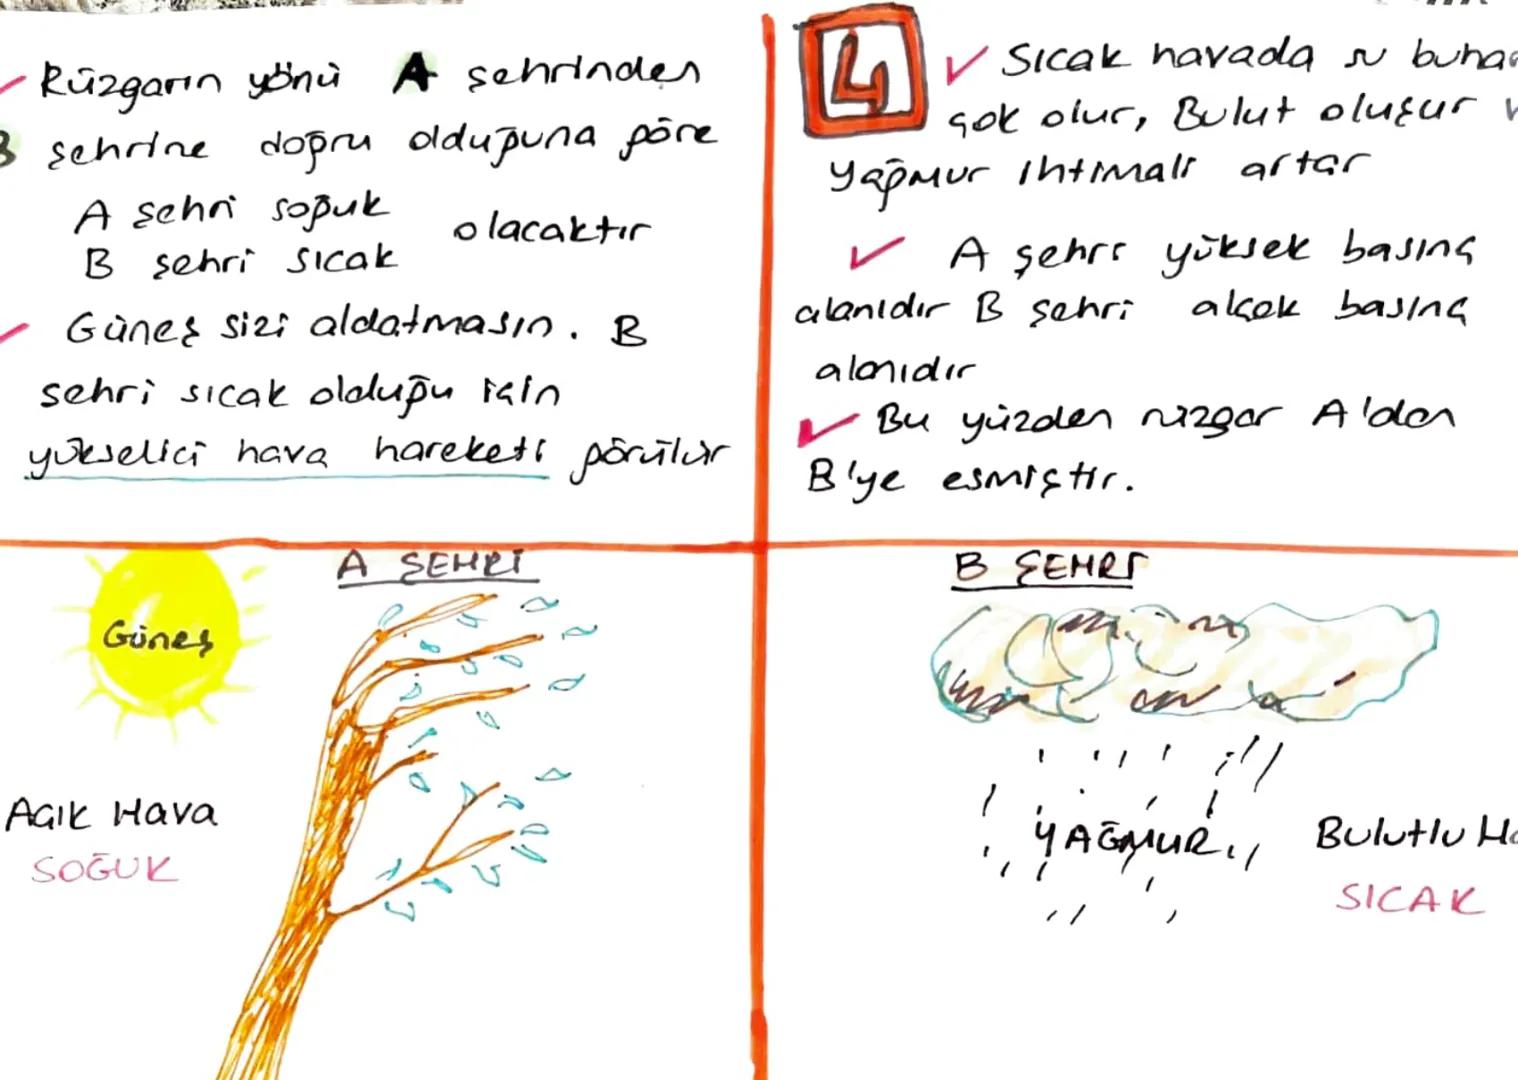 Rüzgarın yönü A şehrinden
B şehrine doğru olduğuna göre
A şehri soğuk
B şehri sıcak
olacaktır
Güneş sizi aldatmasın. B
şehri sıcak olduğu için
yükselici hava hareketi görülür
4
Sıcak havada su buhar
çok olur, Bulut oluşur
yağmur ihtimali artar
A şehri yüksek basınç
alanıdır B şehri alçak basınç
alanıdır
Bu yüzden rüzgar A'dan
B'ye esmiştir.
A ŞEHRİ
Güneş
Açık Hava
SOĞUK
B ŞEHRİ
YAĞMUR
Bulutlu
SICAK